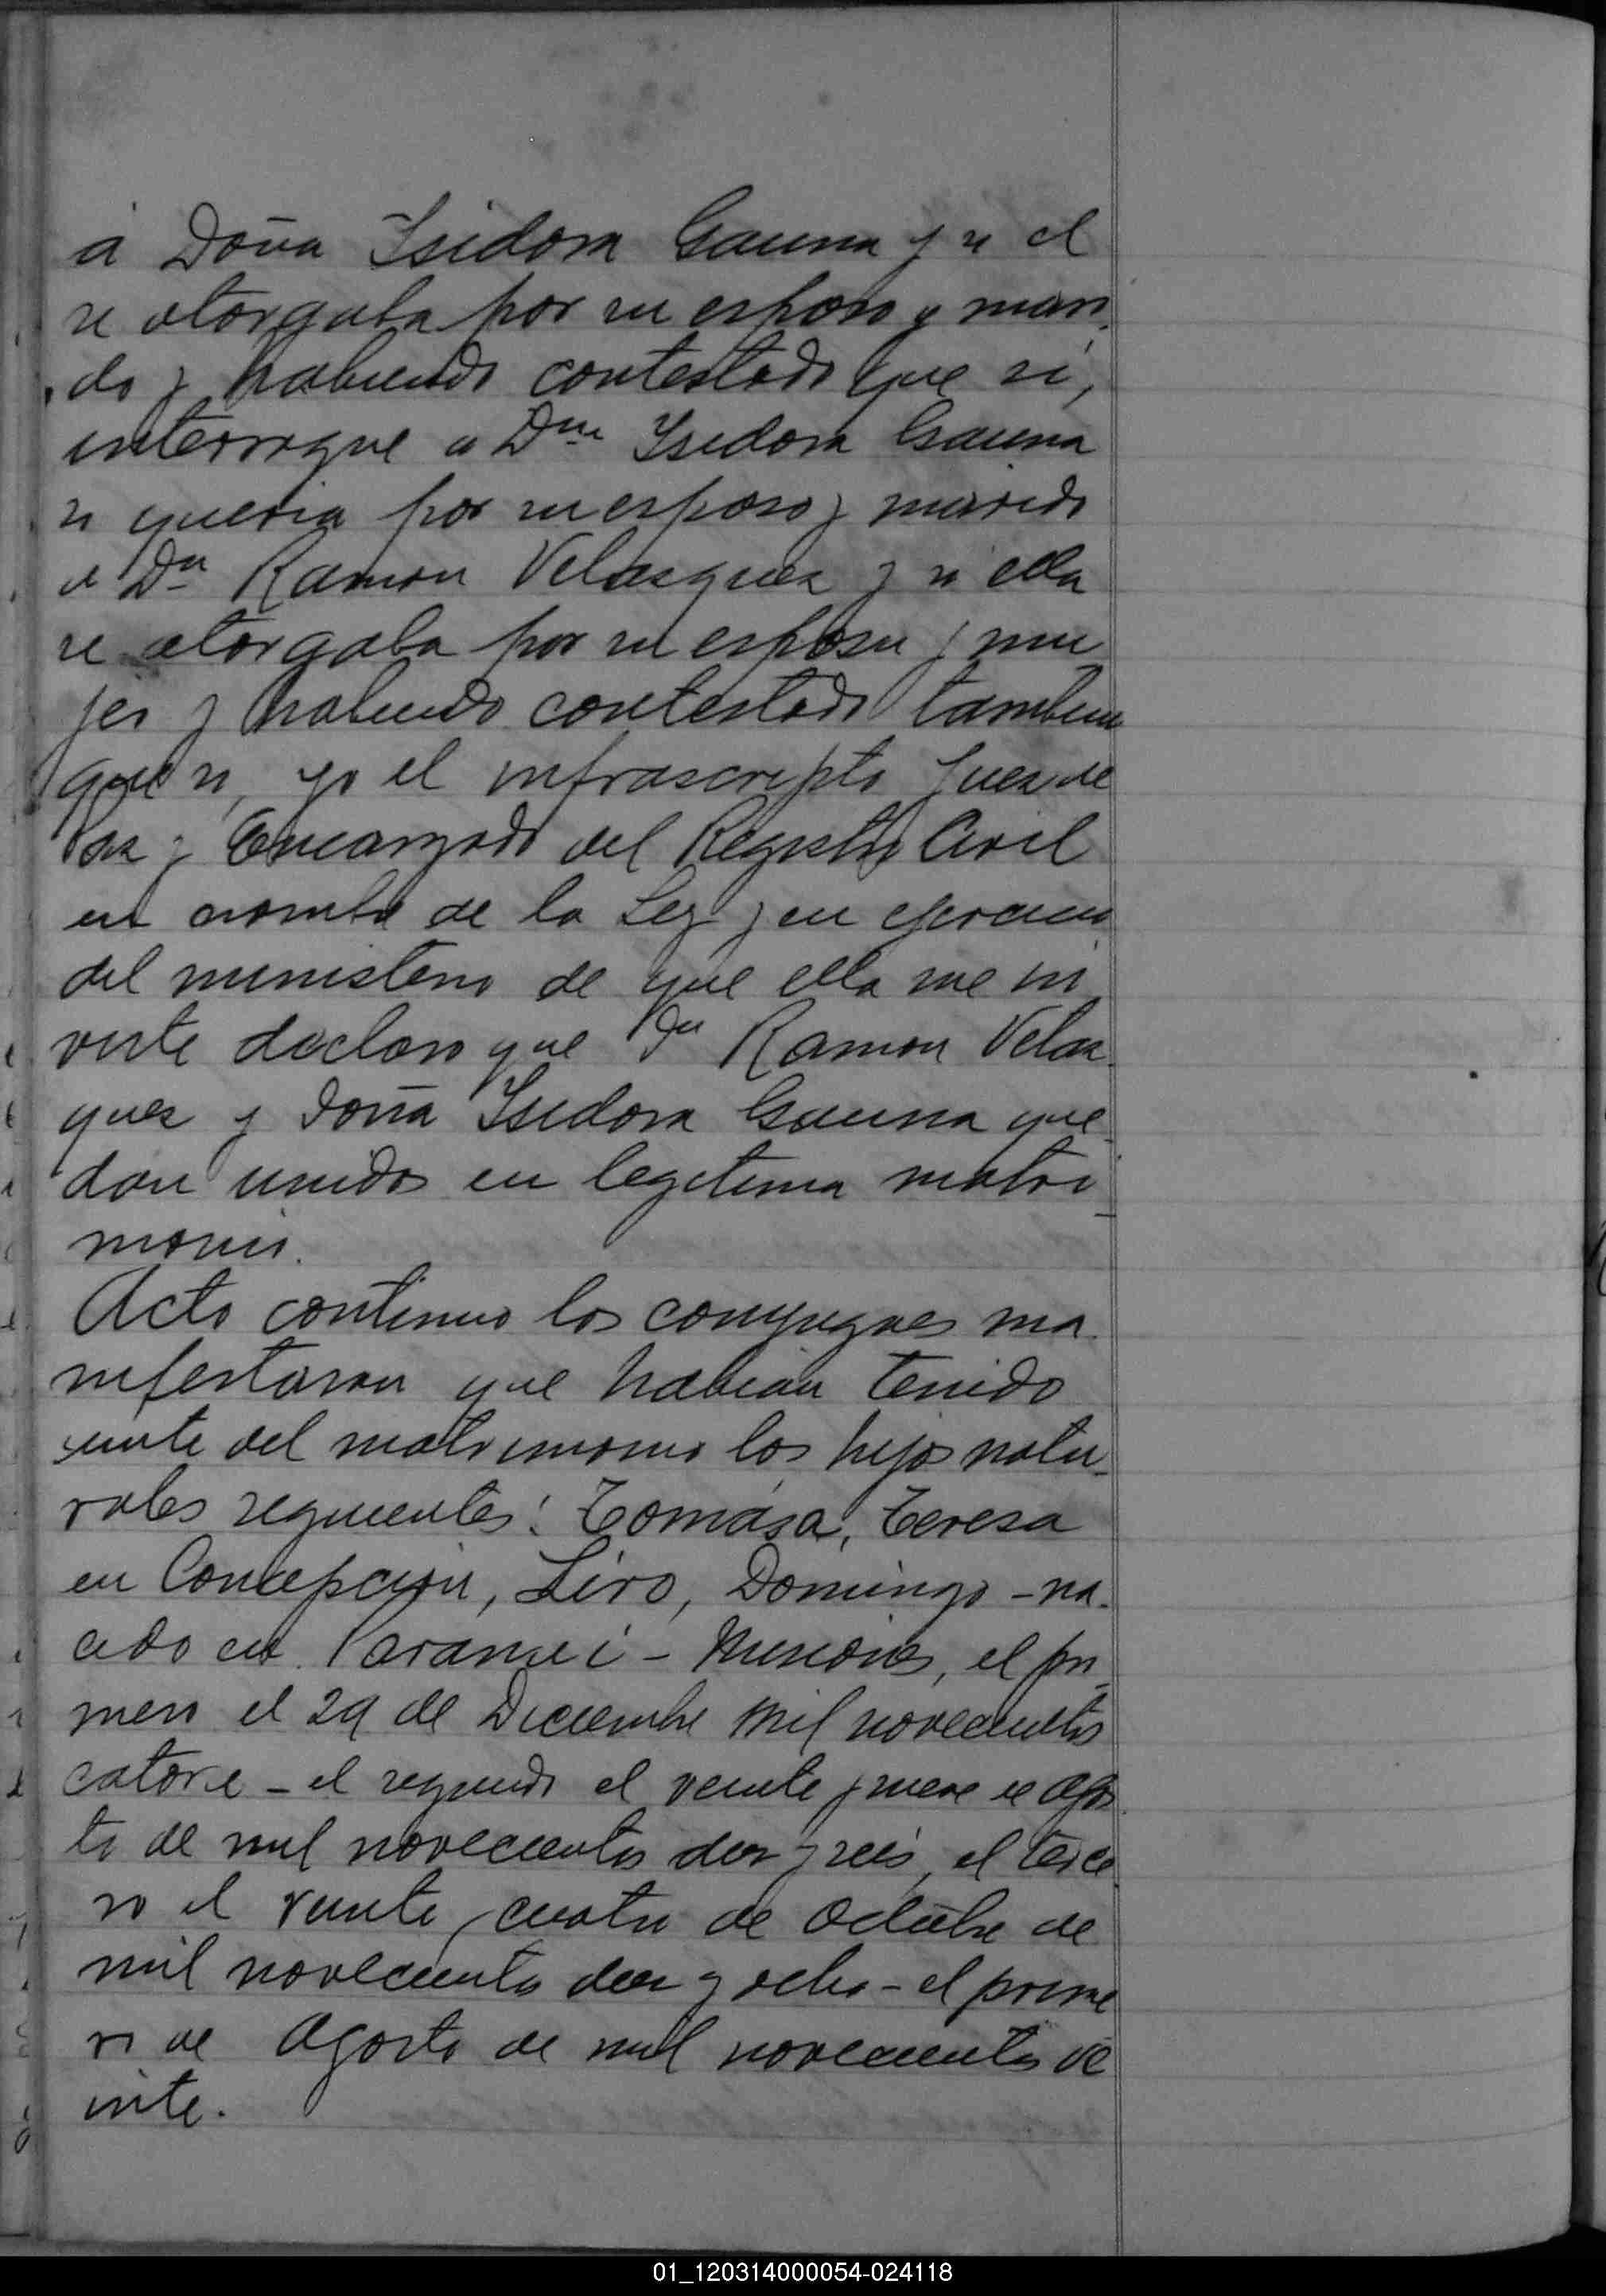 á Doña Isidora Gauna y si el
se otorgaba por su esposo y mari
do y habiendo contestado que si,
interrogue a Dña Isidora Gauna
si queria por su esposo y marido
a Dn Ramon Velasquez y si ella
se otorgaba por su esposa y mu
jer y habiendo contestado tambien
que si, yo el infrascripto Juez de
Paz y Encargado del Registro Civil
en nombre de la Ley y en ejercicio
del ministerio de que ella me in
viste declaro que Dn Ramon Velaz
quez y Doña Isidora Gauna que
dan unidos en legitima matri
monio.
Acto continuo los conyugues ma
nifestaron que habian tenido
ante del matrimonio los hijos natu
rales siguientes: Tomása, Teresa
en Concepcion, Liro, Domingo - na
cido en - Misiones, el pri
mero el 29 de Diciembre mil novecientos
catorce - el segundo el veinte y nueve de Agos
to de mil novecientos diez y seis, el terce
ro el veinte y cuatro de Octubre de
mil novecientos diez y ocho - el prime
ro de Agosto de mil novecientos ve
inte.
01_120314000054-024118